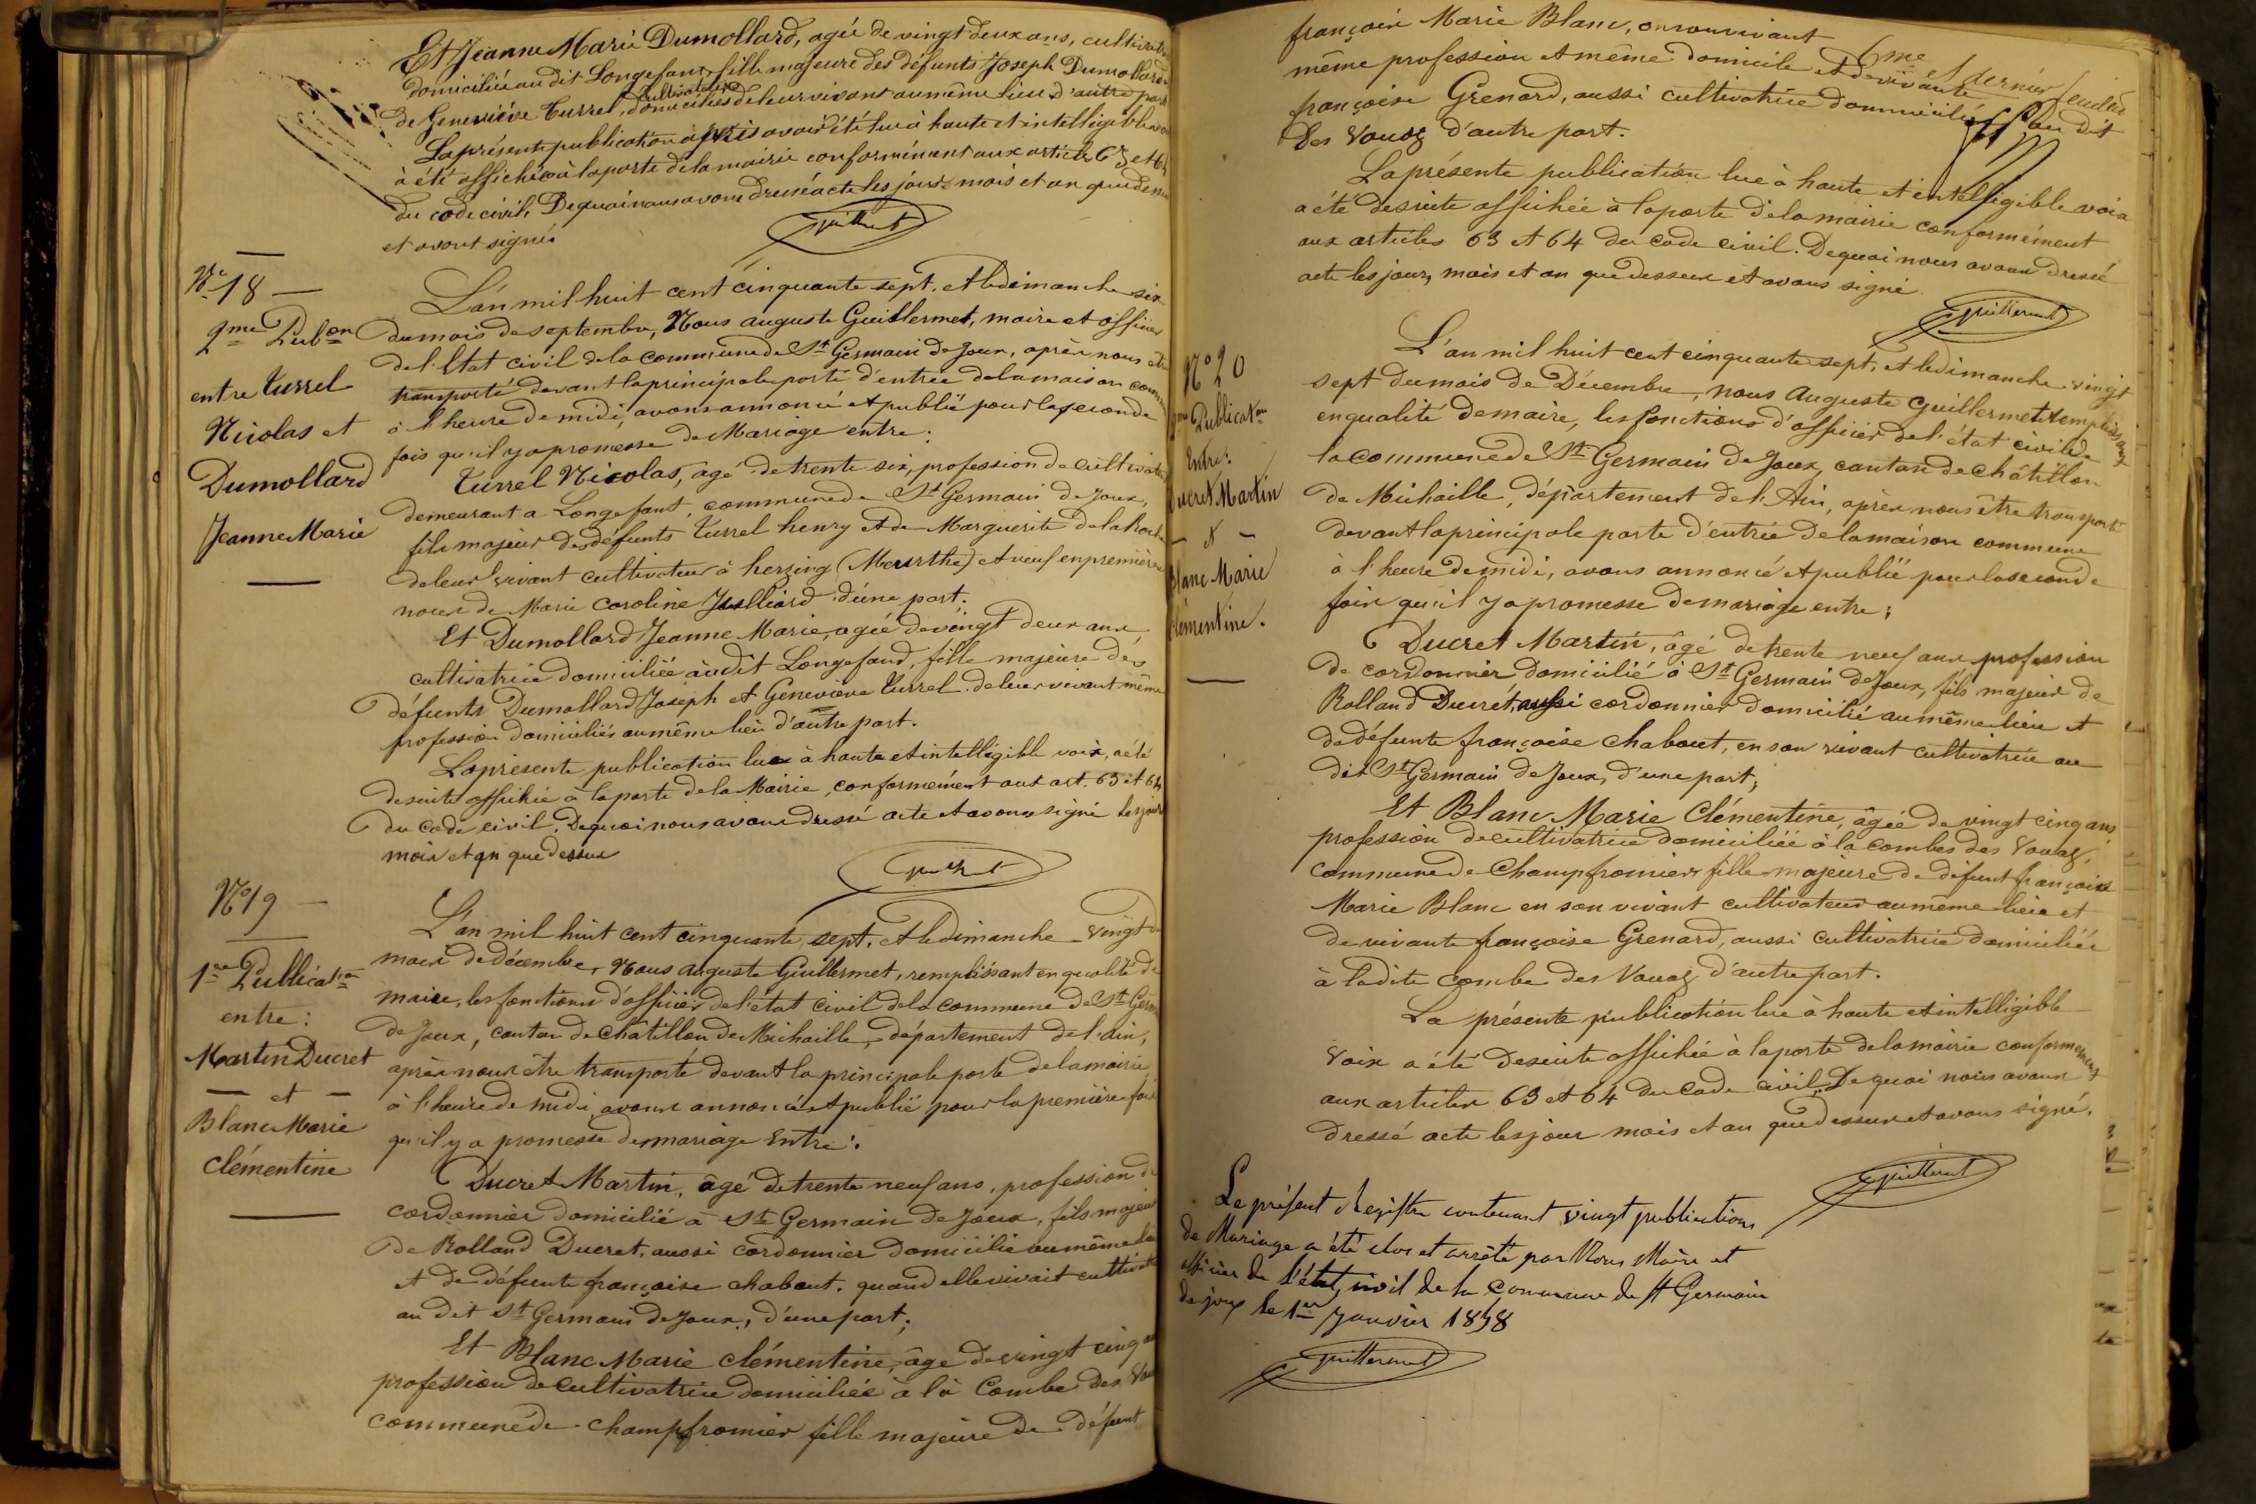 Et Jeanne Marie Dumollard, agée de vingt deux ans, cultivatrice
domiciliée au dit Longefant, fille majeure des défunts Joseph Dumollard
cultivateurs
de Geneviève Turrel, domiciliés de leur vivant au même lieu d'autre part
La présente publication après avoir été lue à haute et intelligible
à été affichée à la porte de la mairie conformément aux articles 63 et 64
du code civil. De quoi nous avons dressé acte les jour, mois et an que dessus
et avons signé.
Guillermet
N° 18
2me Pubon
entre Turrel
Nicolas et
Dumollard
Jeanne Marie
L'an mil huit cent cinquante sept, et le dimanche six
du mois de septembre, Nous auguste Guillermet, maire et officier
de l'Etat civil de la commune de St Germain de Joux, après nous être
transporté devant la principale porte d'entrée de la maison commune
à l'heure de midi, avons annoncé et publié pour la seconde
fois qu'il y a promesse de Mariage entre:
Turrel Nicolas, agé de trente six, profession de cultivateur
demeurant a Longefant, commune de St Germain de Joux,
fils majeur des défunts Turrel henry et de Marguerite
de leur vivant cultivateur à herzing (Meurthe) et veuf en première
noces de Marie Caroline d'une part.
Et Dumollard Jeanne Marie, agée de vingt deux ans
cultivatrice domiciliée au dit Longefand, fille majeure des
défunts Dumollard Joseph et Geneviève Turrel de leur vivant même
profession domiciliés au même lieu d'autre part.
La présente publication lue à haute et intelligible voix, a été
de suite affichée à la porte de la Mairie, conformément aux art. 63 et 64
du Code civil. De quoi nous avons dressé acte et avons signé les jour
mois et an que dessus
Guillermet
N° 19
1re Publication
entre:
Martin Ducret
et
Blanc Marie
Clémentine
L'an mil huit cent cinquante sept, et le dimanche vingt du
mois de décembre, Nous auguste Guillermet, remplissant en qualité de
maire, les fonctions d'officier de l'état civil de la commune de St Germ
de Joux, canton de Châtillon de Michaille, département de l'ain,
après nous être transporté devant la principale porte de la mairie
à l'heure de midi, avons annoncé et publié pour la première fois
qu'il y a promesse de mariage Entre:
Ducret Martin, âgé de trente neuf ans, profession de
cordonnier domicilié à St Germain de Joux, fils majeur
de Rolland Ducret, aussi cordonnier domicilié au même lieu
et de défunte françoise Chabout, quand elle vivait cultivatrice
au dit St Germain de Joux, d'une part;
Et Blanc Marie Clémentine, âge de vingt cinq ans
profession de cultivatrice domiciliée à la Combe des Vou
commune de Champfromier fille majeure de défunt
6me et dernier feuillet
françois Marie Blanc, en son vivant
même profession et même domicile et de vivante
françoise Grenard, aussi cultivatrice domiciliée au dit
Des Vouas d'autre part.
La présente publication lue à haute et intelligible voix
a été de suite affichée à la porte de la mairie conformément
aux articles 63 et 64 du Code civil. De quoi nous avons dressé
acte les jour, mois et an que dessus et avons signé.
Guillermet
N° 20
Publication
Entre:
Ducret Martin
et
Blanc Marie
Clémentine.
L'an mil huit cent cinquante sept, et le dimanche vingt
sept du mois de Décembre, nous Auguste Guillermet remplissant
en qualité de maire, les fonctions d'officier de l'état civil de
la commune de St Germain de Joux, canton de Châtillon
de Michaille, département de l'Ain, après nous être transporté
devant la principale porte d'entrée de la maison commune
à l'heure de midi, avons annoncé et publié pour la seconde
fois qu'il y a promesse de mariage entre;
Ducret Martin, âgé de trente neuf ans profession
de cordonnier domicilié à St Germain de Joux, fils majeur de
Rolland Ducret, aussi cordonnier domicilié au même lieu et
de défunte françoise Chabout, en son vivant cultivatrice au
dit St Germain de Joux, d'une part;
Et Blanc Marie Clémentine, âgée de vingt cinq ans
profession de cultivatrice domiciliée à la Combes des Vouas,
commune de Champfromier fille majeure de défunt françois
Marie Blanc en son vivant cultivateur au même lieu et
de vivante françoise Grenard, aussi cultivatrice domiciliée
à ladite Combe des Vouas d'autre part.
La présente publication lue à haute et intelligible
voix a été de suite affichée à la porte de la mairie conformément
aux articles 63 et 64 du Code civil. De quoi nous avons
dressé acte les jour mois et an que dessus et avons signé.
Guillermet
Le présent Registre contenant vingt publications
de Mariage a été clos et arrêté par Nous Maire et
officier de l'état civil de la Commune de St Germain
de joux le 1er Janvier 1858
Guillermet